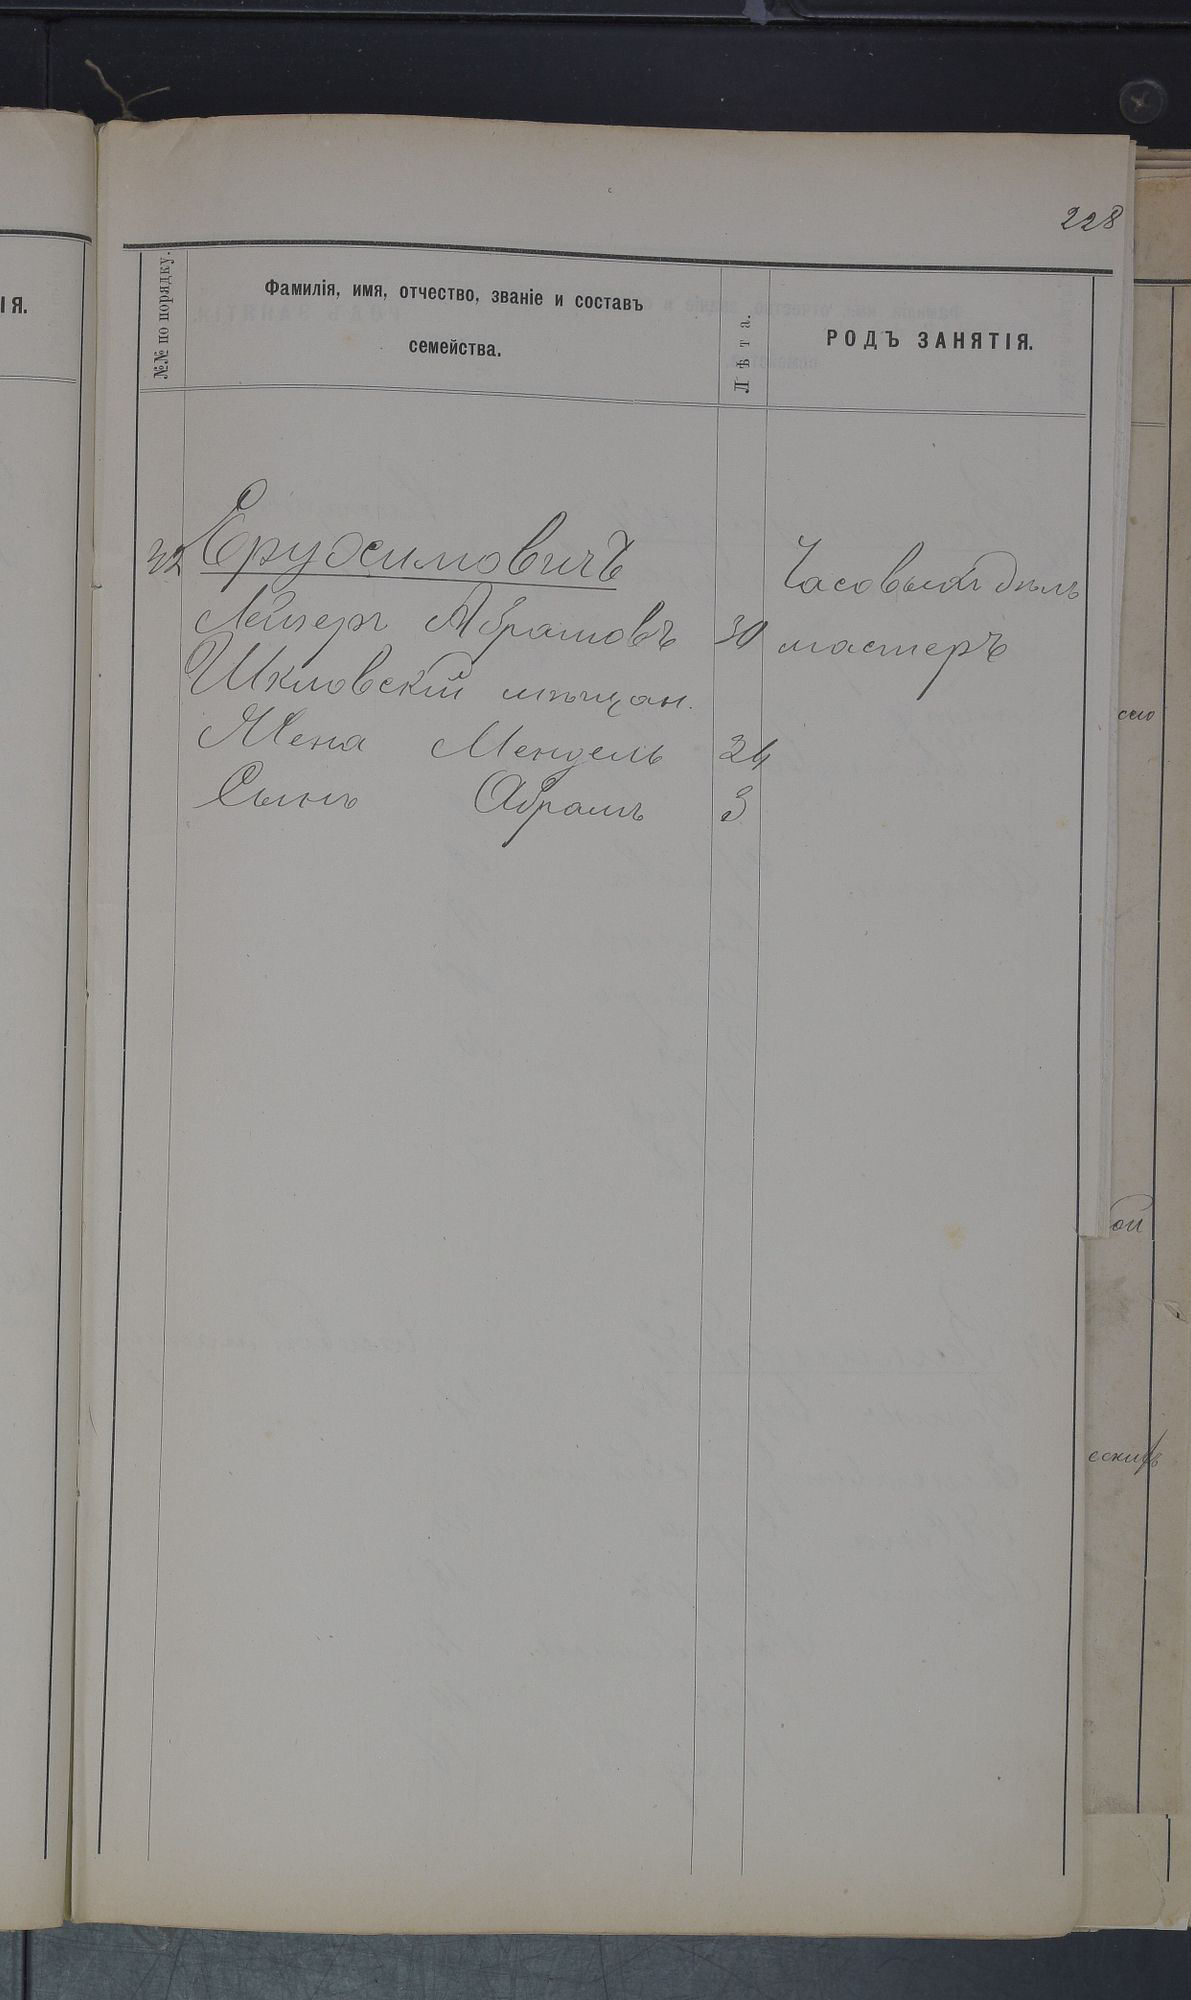 228
ІЯ.
№№ по порядку.
Фамилія, имя, отчество, званіе и составъ
семейства.
Лѣта.
РОДЪ ЗАНЯТІЯ.
32 Ерухимовичъ Часовыхъ дѣлъ
Лейзеръ Абрамовъ 30 мастеръ
Шкловскій мѣщан.
Жена Мендель 24
Сынъ Абрамъ 3